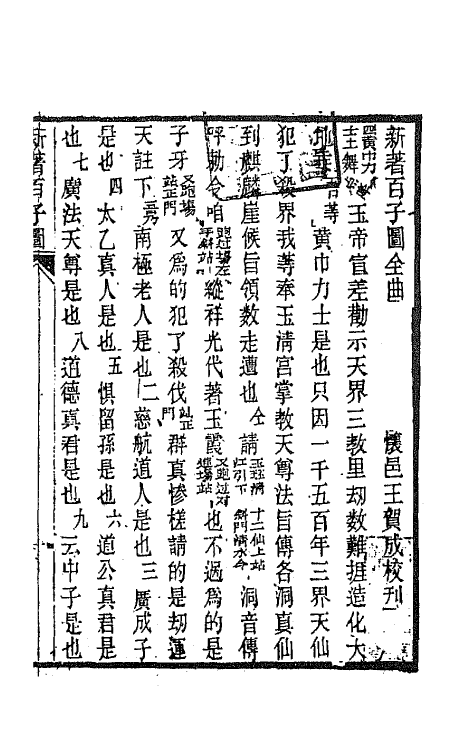 新著百子圖全曲　懷邑王賀成校刊
黃巾力士舞 玉帝宣差勸示天界三教里刼數難捱造化大
吾等 黃巾力士是也只因一千五百年三界天仙
犯了殺界我等奉玉清宮掌教天尊法旨傳各洞真仙
到麒麟崖候旨領數走遭也 仝 請 十二仙上站 洞音傳
呼勅令咱 縱祥光代著玉霞 也不過爲的是
子牙 又跑場站門 又爲的犯了殺伐 站門 群真慘槎請的是刼運
天註下 南極老人是也 二 慈航道人是也 三 廣成子
是也 四 太乙真人是也 五 惧留孫是也 六 道公真君是
也 七 廣法天尊是也 八 道德真君是也 九 云中子是也
新著百子圖